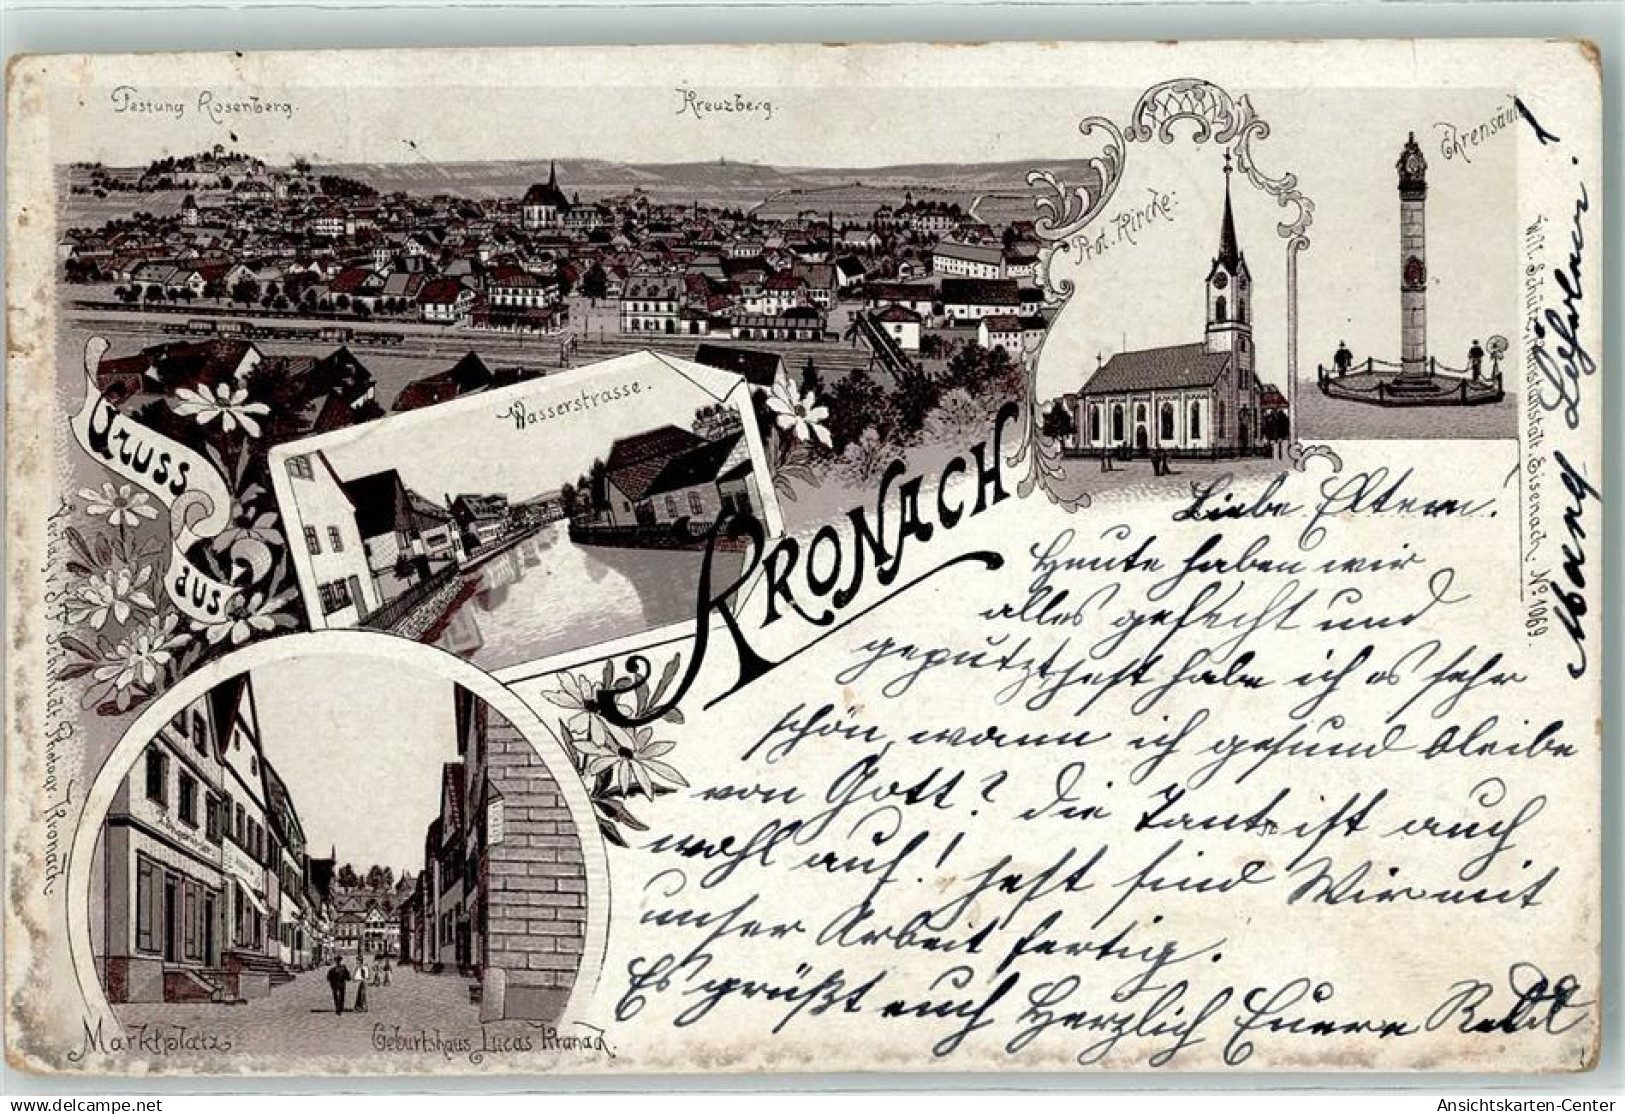 Festung Rosenberg.
Kreuzberg.
Prot. Kirche.
Ehrensäule
Wasserstrasse.
Gruss
aus
KRONACH
Marktplatz
Geburtshaus Lucas Kranach.
Verlag v. J. F. Schmidt, Photogr. Kronach.
Wil. Schütz, Kunstanstalt Eisenach. Nº 1069.
Liebe Eltern.
Heute haben wir
alles gefecht und
geputzt jest habe ich es sehr
schön, wann ich gesund bleibe
von Gott? die Tante ist auch
wohl auf! jest sind Wir mit
unser Arbeit fertig.
Es grüßt euch Herzlich Euere
Ansichtskarten-Center
www.delcampe.net